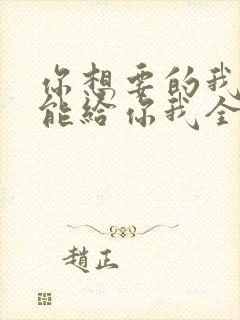 你想要的我
能给你我全
趙正